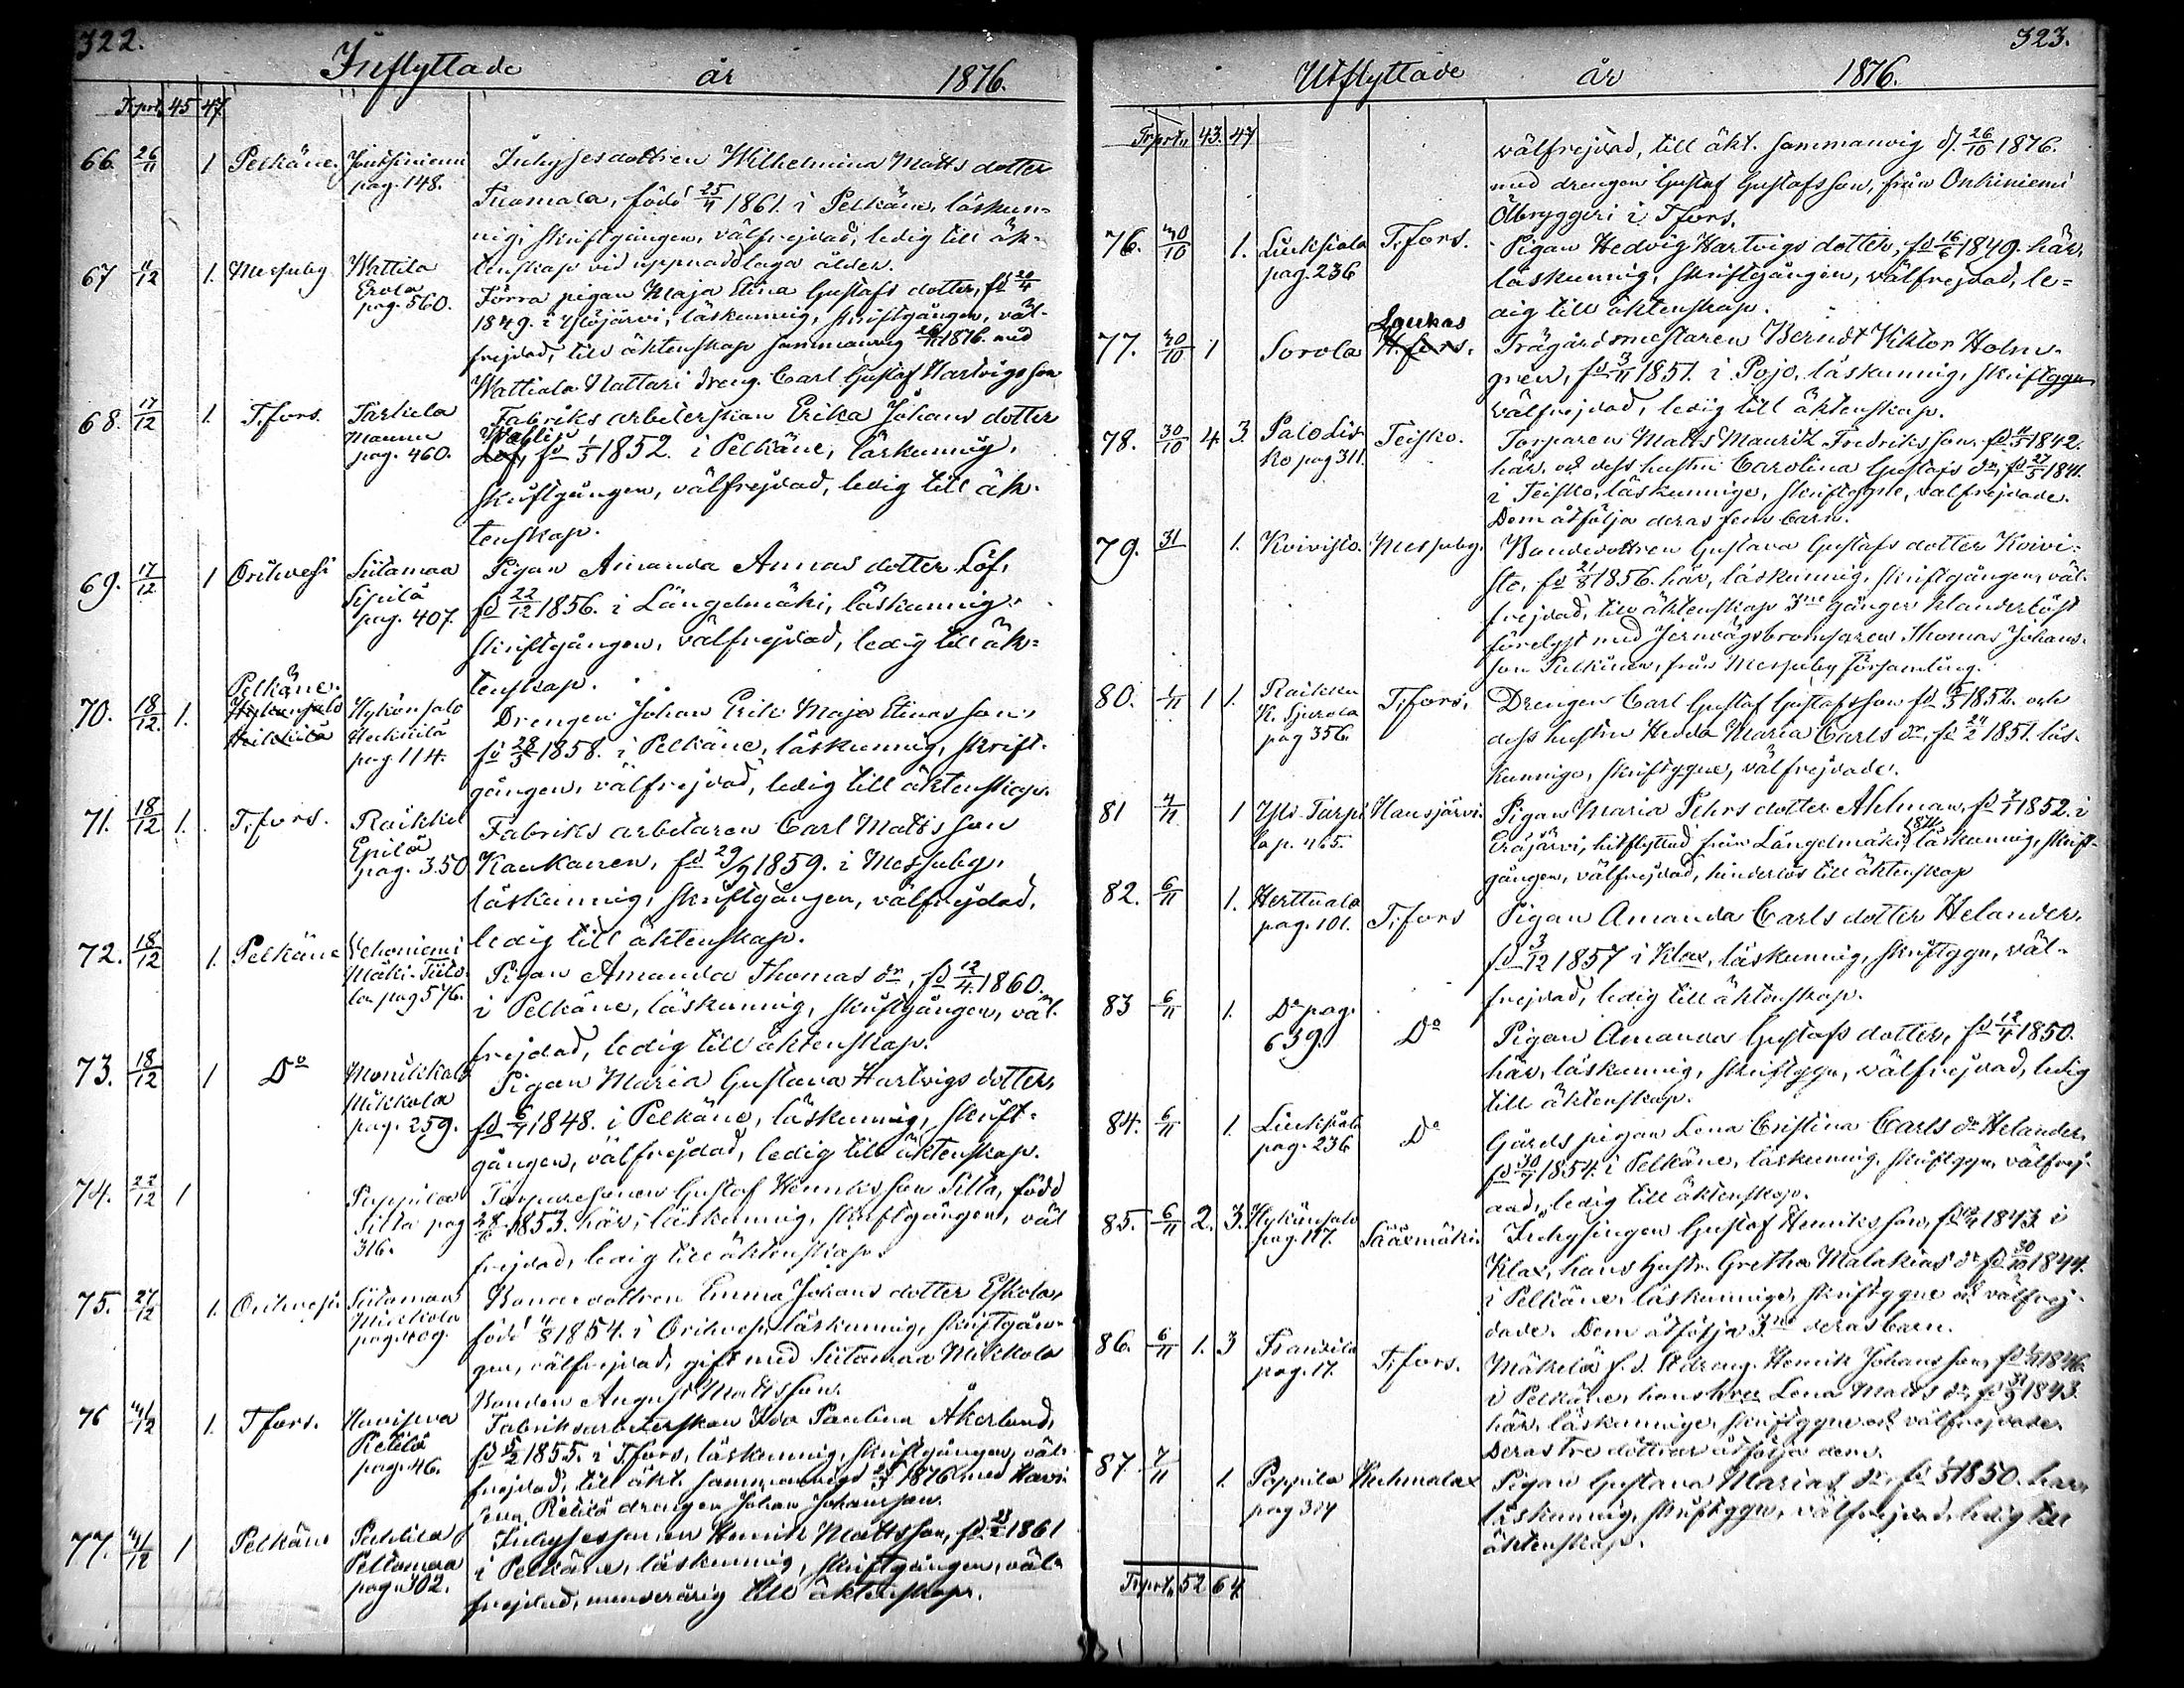 322.
Inflyttade år 1876.
Trprt. 45 47
66. 26/11 1 Pelkäne Jouttiniemi pag. 148.
Inhysesdottren Wilhelmina Matts dotter
Tuomala, född 25/4 1861. i Pelkäne, läskun-
nig, skriftgången, välfrejdad, ledig till äk-
tenskap vid uppnådd laga ålder.
67 /12 1. Messuby Wattila Erola pag. 560.
Förra pigan Maja Stina Gustafs dotter, fd 20/4
1849. i Ylöjärvi, läskunnig, skriftgången, väl-
frejdad, till äktenskap sammanvig 26/11 1876. med
Wattiala Nattari dreng. Carl Gustaf Hartvigsson
68. 17/12 1. T.fors. Tarkiala Mannu pag. 460.
Fabriks arbeterskan Erika Johans dotter
fd 1/5 1852. i Pelkäne, läskunnig,
skriftgången, välfrejdad, ledig till äk-
tenskap.
69. 17/12 1 Orihvesi Siitamaa Sipilä pag. 407.
Pigan Amanda Annas dotter Löf,
fd 22/12 1856. i Längelmäki, läskunnig,
skriftgången, välfrejdad, ledig till äk-
tenskap.
70. 18/12. 1. Pelkäne. Hykönsalo Heikkilä pag. 114.
Drengen Johan Erik Maja Stinas son,
fd 28/3 1858. i Pelkäne, läskunnig, skrift-
gången, välfrejdad, ledig till äktenskap.
71. 18/12 1. T.fors. Raikku Epilä pag. 350
Fabriks arbetaren Carl Matts son
Kaukanen, fd 29/9 1859. i Messuby,
läskunnig, skriftgången, välfrejdad,
ledig till äktenskap.
72. 18/12 1. Pelkäne Vehoniemi Mäki-Tiito-la pag 576.
Pigan Amanda Thomas dr, fd 12/4. 1860.
i Pelkäne, läskunnig, skriftgången, väl-
frejdad, ledig till äktenskap.
73. 18/12 1 Do Morikkala Mikkola pag. 259.
Pigan Maria Gustava Hartvigs dotter,
fd 6/7 1848. i Pelkäne, läskunnig, skrift-
gången, välfrejdad, ledig till äktenskap.
74. 22/12 1 Pappila Silla pag 316.
Torparesonen Gustaf Henriksson Silla, född
1853. här, läskunnig, skriftgången, väl
frejdad, ledig till äktenskap.
75. 27/12 1. Orihvesi Siitaman Mikkola pag. 409.
Bonde dottren Emma Johans dotter Eskola,
född /8 1854. i Orihvesi, läskunnig, skriftgån-
gen, välfrejdad, gift med Siitamaa Mikkola
Bonden August Mattsson.
76 31/12 1. T.fors. Haviseva Retilä pag. 46.
Fabriksarbeterskan Ida Paulina Åkerlund,
fd 1855. i T.fors, läskunnig, skriftgången, väl-
frejdad, till äkt. sammanvigd 1876 med Havi-
seva Retilä drengen Johan Johansson.
77. 31/12 1 Pelkäne Pakkila Peltomaa pag. 302.
Inhysessonen Henrik Mattsson, fd. 1861
i Pelkäne, läskunnig, skriftgången, väl-
frejdad, minderårig till äktenskap.
323.
Utflyttade år 1876.
Trprt. 43. 47
välfrejdad, till äkt. sammanvig d. 26/10 1876.
med drengen Gustaf Gustafsson, från Onkiniemi
Ölbryggeri i T.fors.
76. 30/10 1. Liuksiala pag. 236 T.fors.
Pigan Hedvig Hartvigs dotter, fd 16/6 1849. här,
läskunnig, skriftgången, välfrejdad, le-
dig till äktenskap.
77. 30/10 1 Sorola Laukas H.fors.
Trägårdsmestaren Berndt Viktor Holm-
gren, fd 3/11 1851. i Pojo, läskunnig, skriftggn
välfrejdad, ledig till äktenskap.
78. 30/10 4 3. Palo Lis-ko pag 311. Teisko.
Torparen Matts Maurits Fredriksson fd 1842.
här, och dess hustru Carolina Gustafs dr, fd 27/5 1841.
i Teisko, läskunnige, skriftggne, välfrejdade.
Dem åtfölja deras fem barn.
79. 31 1. Koivisto. Messuby.
Bondedottren Gustava Gustafs dotter Koivi-
sto, fd 21/8 1856. här, läskunnig, skriftgången, väl-
frejdad, till äktenskap 3ne gånger klanderlöst
förelyst med Jernvägsbromsaren Thomas Johans-
son Pulkinen, från Messuby Församling.
80. 1/11 1 1. Raikku K. Sjurola pag 356. T.fors.
Drengen Carl Gustaf Gustafsson fd 1852. och
dess hustru Hedda Maria Carls dr, fd 24/2 1851. läs-
kunnige, skriftggne, välfrejdade.
81 4/11 1 Yli-Tarpi-la p. 465. Hausjärvi.
Pigan Maria Pehrs dotter Ahlman, fd 1852. i
Eräjärvi, hitflyttad från Längelmäki, läskunnig, skrift-
gången, välfrejdad, hinderlös till äktenskap
82. 6/11 1. Herttuala pag. 101. T.fors
Pigan Amanda Carls dotter Helander,
fd 3/12 1857 i Klax, läskunnig, skriftggn, väl-
frejdad, ledig till äktenskap.
83 6/11 1. Do pag. 639. Do
Pigan Amanda Gustafs dotter, fd 12/4 1850.
här, läskunnig, skriftggn, välfrejdad, ledig
till äktenskap.
84. 6/11 1. Liuksiala pag. 236 Do
Gårds pigan Lena Cristina Carls dr Helander,
fd 30/7 1854. i Pelkäne, läskunnig, skriftggn, välfrej-
dad, ledig till äktenskap.
85. 6/11 2. 3. Hykönsalo pag. 117. Sääxmäki.
Inhysingen Gustaf Henriksson, fd 1843. i
Klax, hans hustr. Gretha Malakias dr fd 30/10 1844.
i Pelkäne, läskunnige, skriftggne och välfrej-
dade. Dem åtfölja 3ne deras barn.
86. 6/11 1. 3 Franzila pag. 17. T.fors.
Mäkelä f.d. St.dreng. Henrik Johansson, fd 1846.
i Pelkäne, hans hru Lena Matts dr, fd 31/3 1843.
här, läskunnige, skriftggne och välfrejdade.
Deras tre döttrar åtfölja dem.
87. 7/11 1. Pappila pag 314 Kuhmalax
Pigan Gustava Marias dr, fd 1850. här,
läskunnig, skriftggn, välfrejdad, ledig till
äktenskap.
Trprt. 52 64